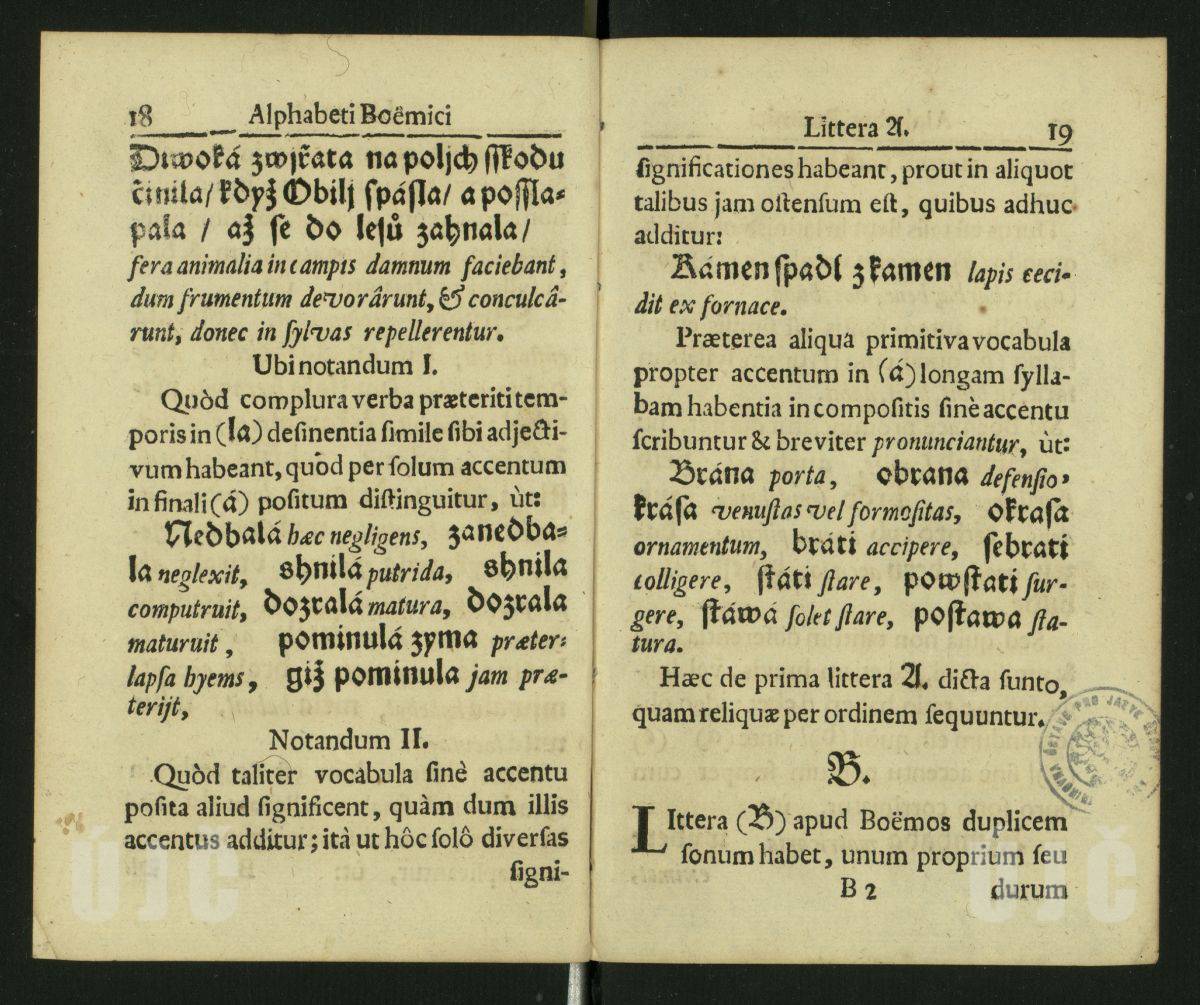 18 Alphabeti Boëmici
Diwoká zwjřata na poljch sſkodu
činila/ když Obilj ſpáſla/ a poſſla⸗
pala / až ſe do leſů zahnala/
fera animalia in campis damnum faciebant,
dum frumentum devorârunt, & conculcâ-
runt, donec in ſylvas repellerentur.
Ubi notandum I.
Quòd complura verba præteriti tem-
poris in (la) deſinentia ſimile ſibi adjecti-
vum habeant, quòd per ſolum accentum
in finali (á) poſitum diſtinguitur, ùt:
Nedbalá hæc negligens, zanedba⸗
la neglexit, shnilá putrida, shnila
computruit, dozralá matura, dozrala
maturuit, pominulá zyma præter-
lapſa hyems, giž pominula jam præ-
terijt,
Notandum II.
Quòd taliter vocabula ſinè accentu
poſita aliud ſignificent, quàm dum illis
accentus additur; ità ut hôc ſolô diverſas
ſigni-
Littera A. 19
ſignificationes habeant, prout in aliquot
talibus jam oſtenſum eſt, quibus adhuc
additur:
Kámen ſpadl z kamen lapis ceci-
dit ex fornace.
Præterea aliqua primitiva vocabula
propter accentum in (á) longam ſylla-
bam habentia in compoſitis ſinè accentu
ſcribuntur & breviter pronunciantur, ùt:
Brána porta, obrana defenſio,
kráſa venuſtas vel formoſitas, okraſa
ornamentum, bráti accipere, ſebrati
colligere, ſtáti ſtare, powſtati ſur-
gere, ſtáwá ſolet ſtare, poſtawa ſta-
tura.
Hæc de prima littera A. dicta ſunto,
quam reliquæ per ordinem ſequuntur.
B.
LIttera (B) apud Boëmos duplicem
ſonum habet, unum proprium ſeu
B 2 durum
ÚJČ
ÚJČ